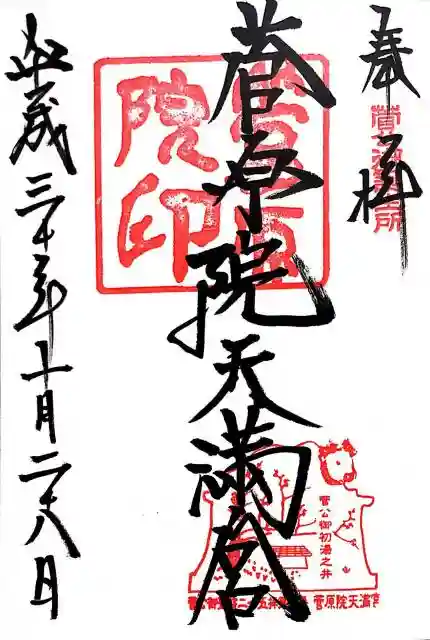 奉拝
菅原院天満宮
平成三十年十月二十八日
菅原院印
菅公御初湯之井
菅原院天満宮